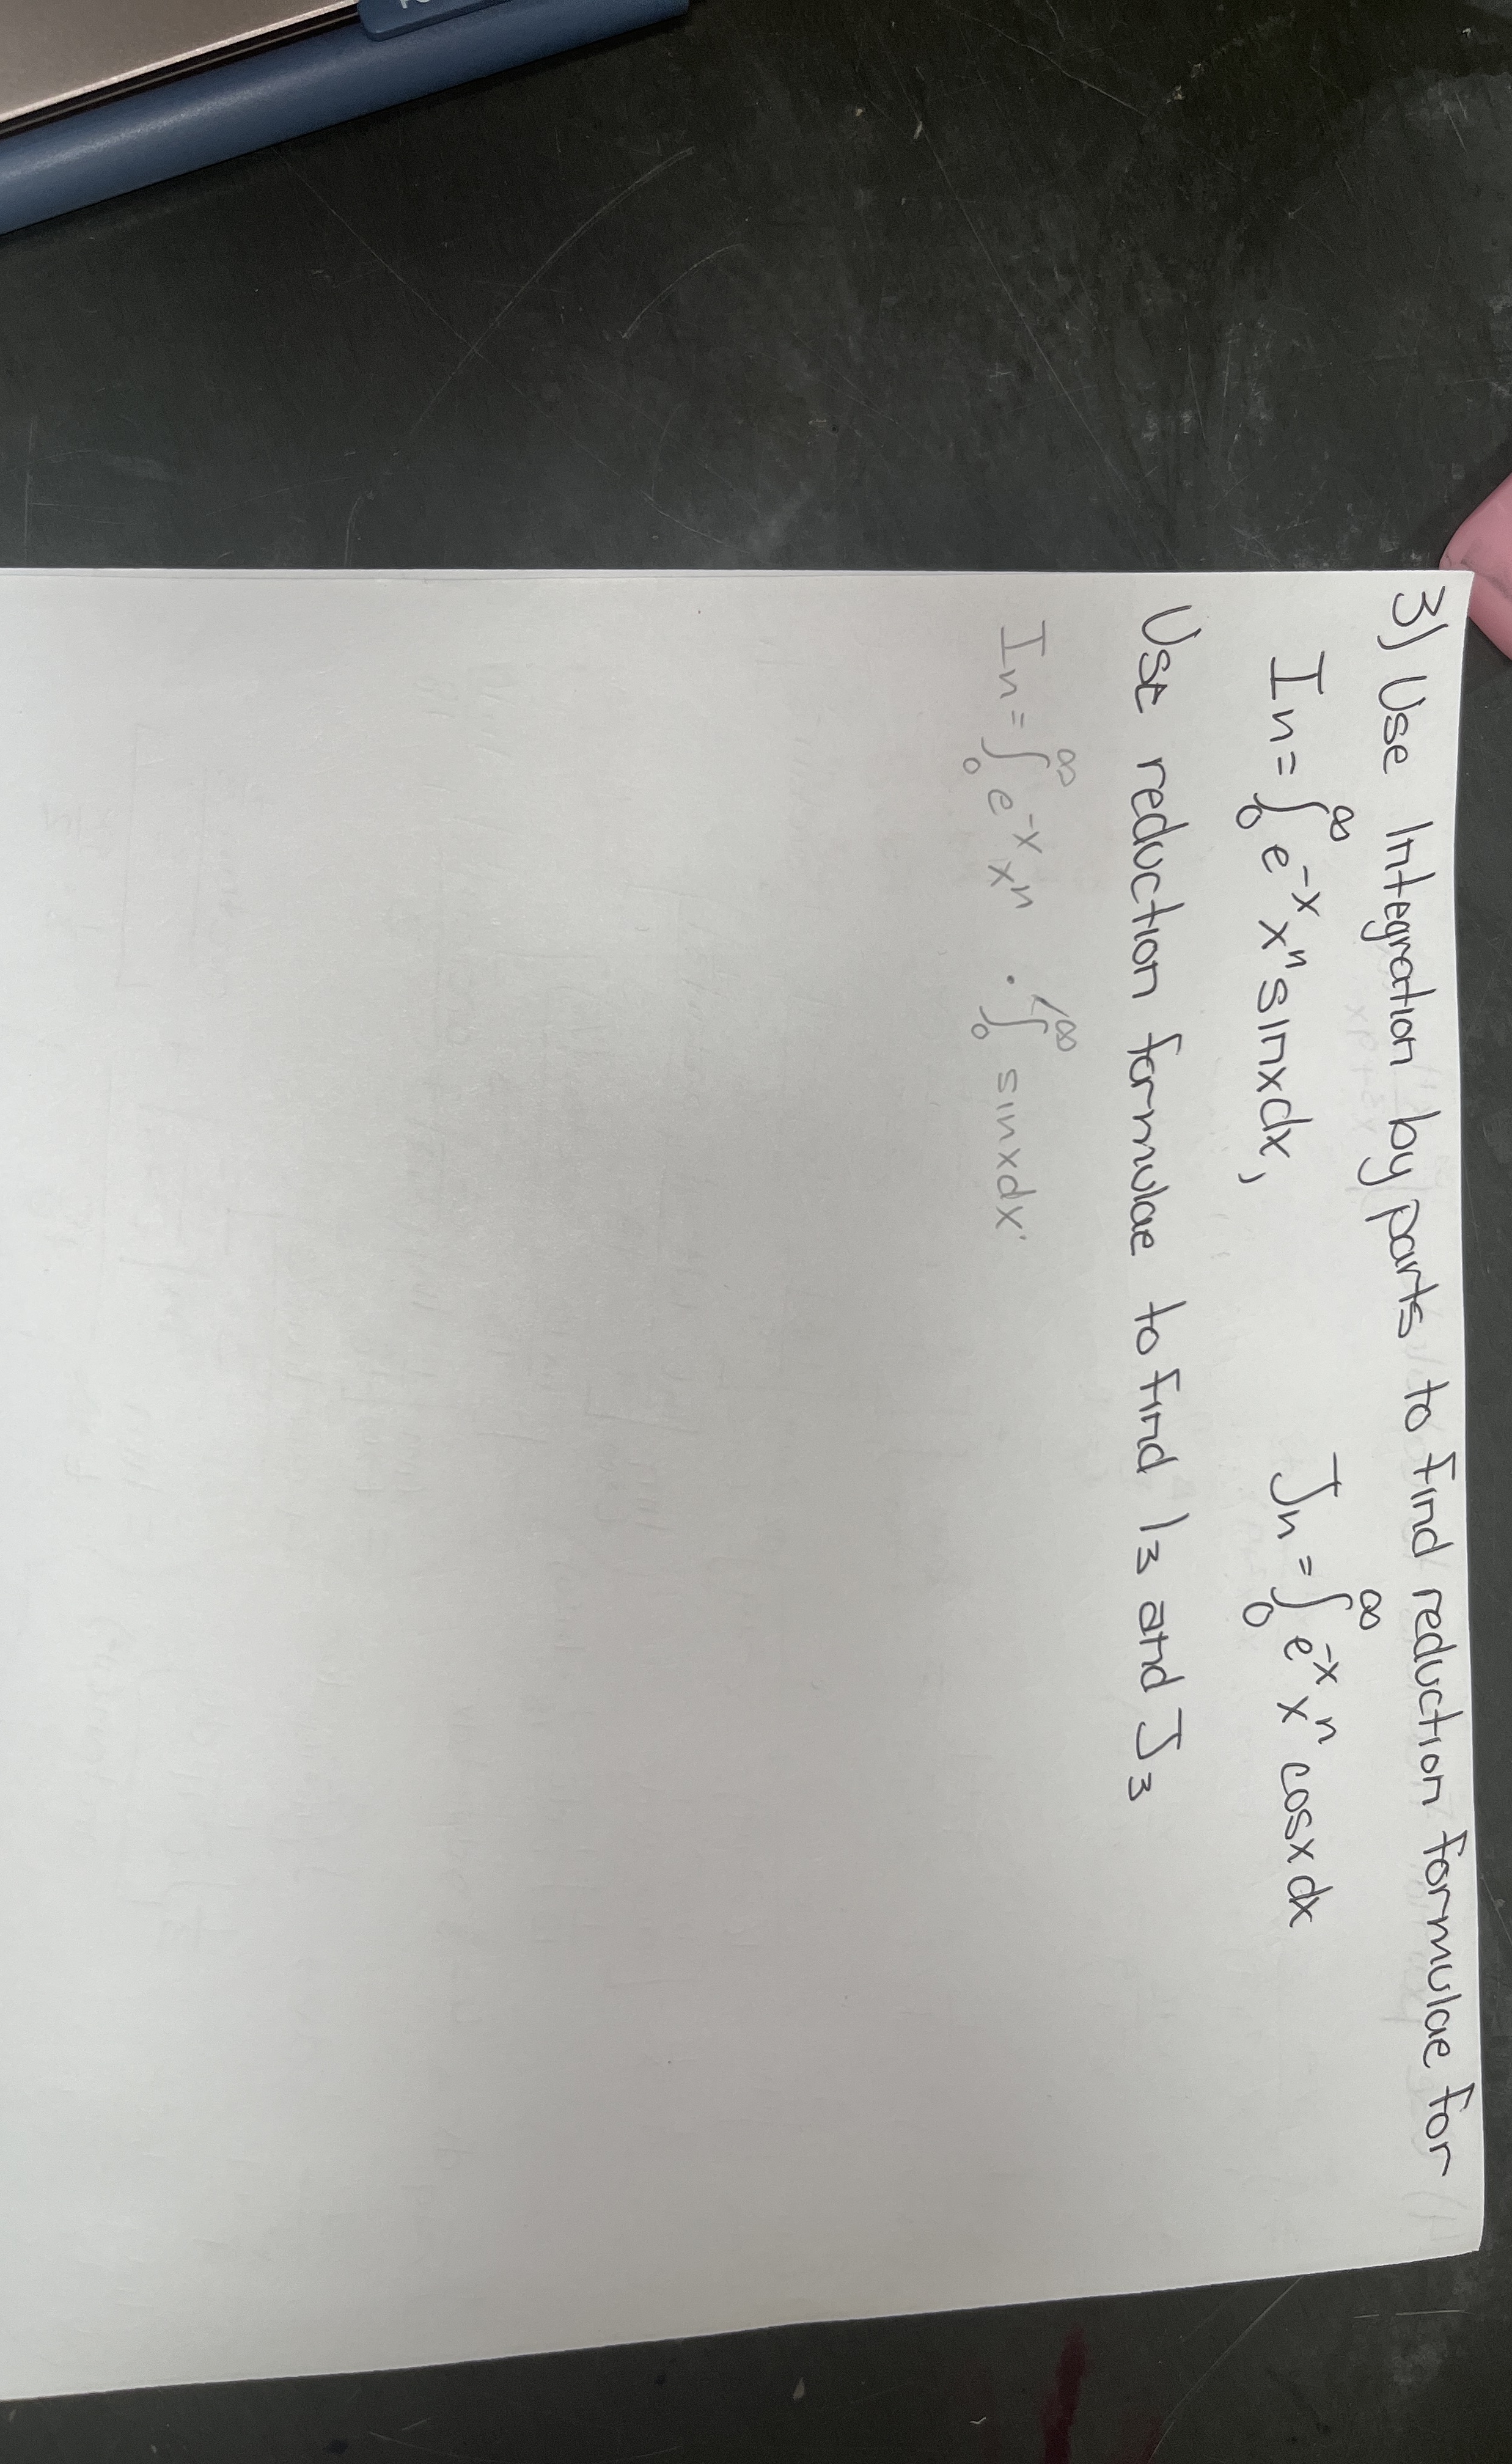 3) Use Integration by parts to find reduction formulae for
In = ∫₀^∞ e^-x x^n sinxdx, Jn = ∫₀^∞ e^-x x^n cosxdx
Use reduction formulae to find I3 and J3
In = ∫₀^∞ e^-x x^n · ∫₀^∞ sinxdx